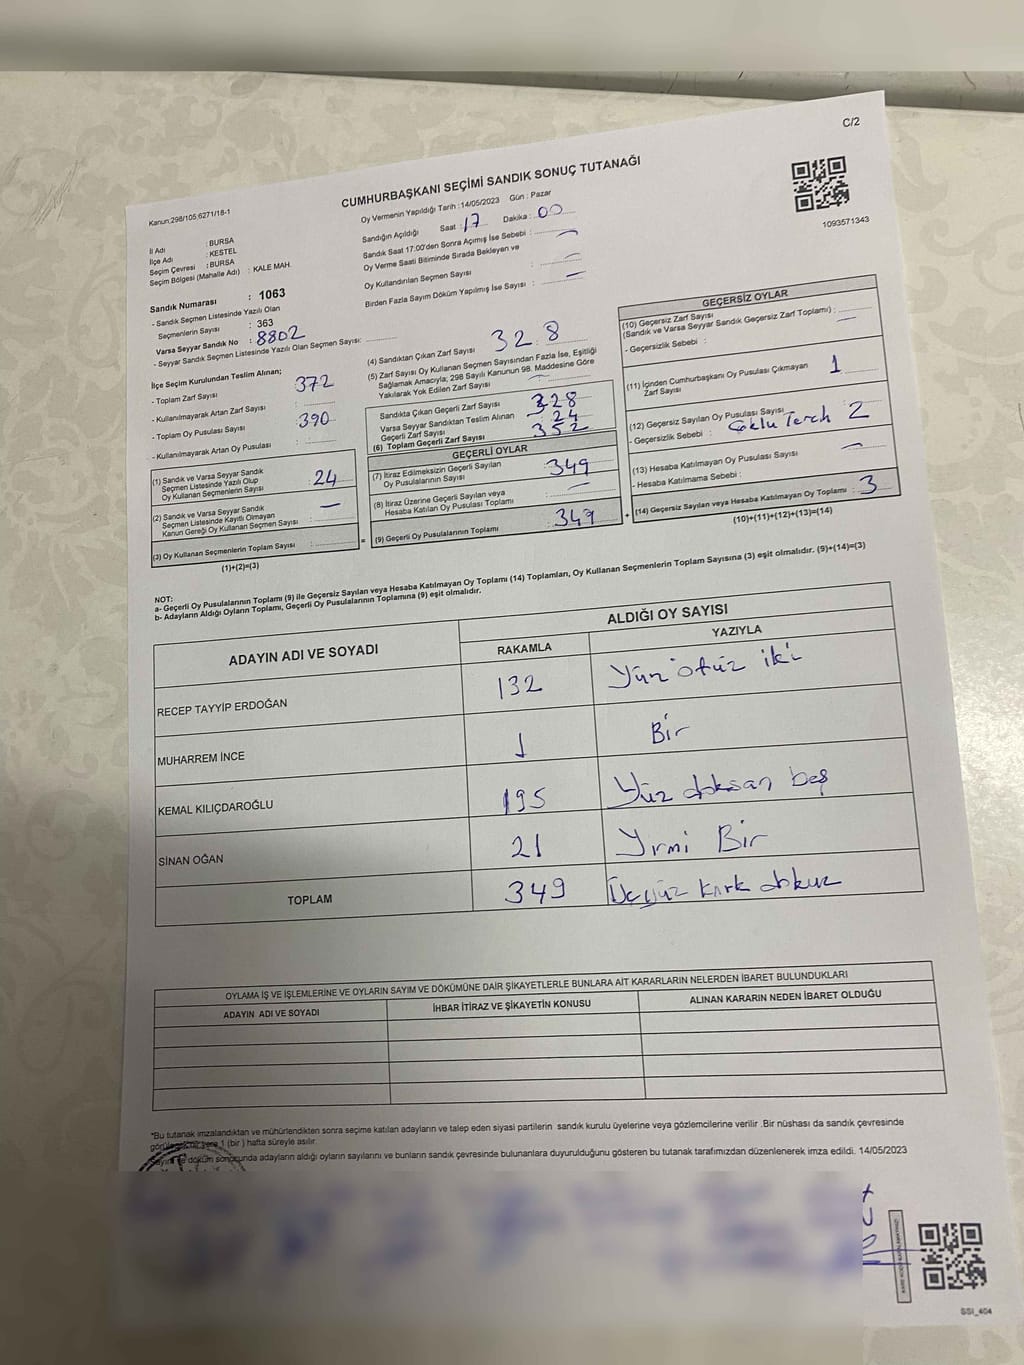 C/2
CUMHURBAŞKANI SEÇİMİ SANDIK SONUÇ TUTANAĞI
1093571343
Kanun;298/105;6271/18-1
İl Adı : BURSA
İlçe Adı : KESTEL
Seçim Çevresi : BURSA
Seçim Bölgesi (Mahalle Adı) : KALE MAH.
Sandık Numarası : 1063
- Sandık Seçmen Listesinde Yazılı Olan
Seçmenlerin Sayısı : 363
Varsa Seyyar Sandık No : 8802
- Seyyar Sandık Seçmen Listesinde Yazılı Olan Seçmen Sayısı:
Oy Vermenin Yapıldığı Tarih :14/05/2023 Gün : Pazar
Sandığın Açıldığı Saat : 17 Dakika : 00
Sandık Saat 17:00'den Sonra Açımış İse Sebebi : —
Oy Verme Saati Bitiminde Sırada Bekleyen ve
Oy Kullandırılan Seçmen Sayısı : —
Birden Fazla Sayım Döküm Yapılmış İse Sayısı : —
İlçe Seçim Kurulundan Teslim Alınan;
- Toplam Zarf Sayısı : 372
- Kullanılmayarak Artan Zarf Sayısı :
- Toplam Oy Pusulası Sayısı : 390
- Kullanılmayarak Artan Oy Pusulası :
(1) Sandık ve Varsa Seyyar Sandık
Seçmen Listesinde Yazılı Olup
Oy Kullanan Seçmenlerin Sayısı : 24
(2) Sandık ve Varsa Seyyar Sandık
Seçmen Listesinde Kayıtlı Olmayan
Kanun Gereği Oy Kullanan Seçmen Sayısı : —
(3) Oy Kullanan Seçmenlerin Toplam Sayısı :
(1)+(2)=(3)
=
(4) Sandıktan Çıkan Zarf Sayısı 328
(5) Zarf Sayısı Oy Kullanan Seçmen Sayısından Fazla İse, Eşitliği
Sağlamak Amacıyla; 298 Sayılı Kanunun 98. Maddesine Göre
Yakılarak Yok Edilen Zarf Sayısı
Sandıkta Çıkan Geçerli Zarf Sayısı 328
Varsa Seyyar Sandıktan Teslim Alınan
Geçerli Zarf Sayısı 24
(6) Toplam Geçerli Zarf Sayısı 352
GEÇERLİ OYLAR
(7) İtiraz Edilmeksizin Geçerli Sayılan
Oy Pusulalarının Sayısı : 349
(8) İtiraz Üzerine Geçerli Sayılan veya
Hesaba Katılan Oy Pusulası Toplamı : —
(9) Geçerli Oy Pusulalarının Toplamı : 349
+
GEÇERSİZ OYLAR
(10) Geçersiz Zarf Sayısı
(Sandık ve Varsa Seyyar Sandık Geçersiz Zarf Toplamı) : —
- Geçersizlik Sebebi :
(11) İçinden Cumhurbaşkanı Oy Pusulası Çıkmayan
Zarf Sayısı 1
(12) Geçersiz Sayılan Oy Pusulası Sayısı 2
- Geçersizlik Sebebi : Çoklu Terch
(13) Hesaba Katılmayan Oy Pusulası Sayısı —
- Hesaba Katılmama Sebebi :
(14) Geçersiz Sayılan veya Hesaba Katılmayan Oy Toplamı : 3
(10)+(11)+(12)+(13)=(14)
NOT:
a- Geçerli Oy Pusulalarının Toplamı (9) ile Geçersiz Sayılan veya Hesaba Katılmayan Oy Toplamı (14) Toplamları, Oy Kullanan Seçmenlerin Toplam Sayısına (3) eşit olmalıdır. (9)+(14)=(3)
b- Adayların Aldığı Oyların Toplamı, Geçerli Oy Pusulalarının Toplamına (9) eşit olmalıdır.
ADAYIN ADI VE SOYADI
ALDIĞI OY SAYISI
RAKAMLA YAZIYLA
RECEP TAYYİP ERDOĞAN 132 Yüz otuz iki
MUHARREM İNCE 1 Bir
KEMAL KILIÇDAROĞLU 195 Yüz doksan beş
SİNAN OĞAN 21 Yirmi Bir
TOPLAM 349 Üçyüz kırk dokuz
OYLAMA İŞ VE İŞLEMLERİNE VE OYLARIN SAYIM VE DÖKÜMÜNE DAİR ŞİKAYETLERLE BUNLARA AİT KARARLARIN NELERDEN İBARET BULUNDUKLARI
ADAYIN ADI VE SOYADI İHBAR İTİRAZ VE ŞİKAYETİN KONUSU ALINAN KARARIN NEDEN İBARET OLDUĞU
*Bu tutanak imzalandıktan ve mühürlendikten sonra seçime katılan adayların ve talep eden siyasi partilerin sandık kurulu üyelerine veya gözlemcilerine verilir .Bir nüshası da sandık çevresinde
yere 1 (bir ) hafta süreyle asılır.
döküm sonucunda adayların aldığı oyların sayılarını ve bunların sandık çevresinde bulunanlara duyurulduğunu gösteren bu tutanak tarafımızdan düzenlenerek imza edildi. 14/05/2023
SSI_404